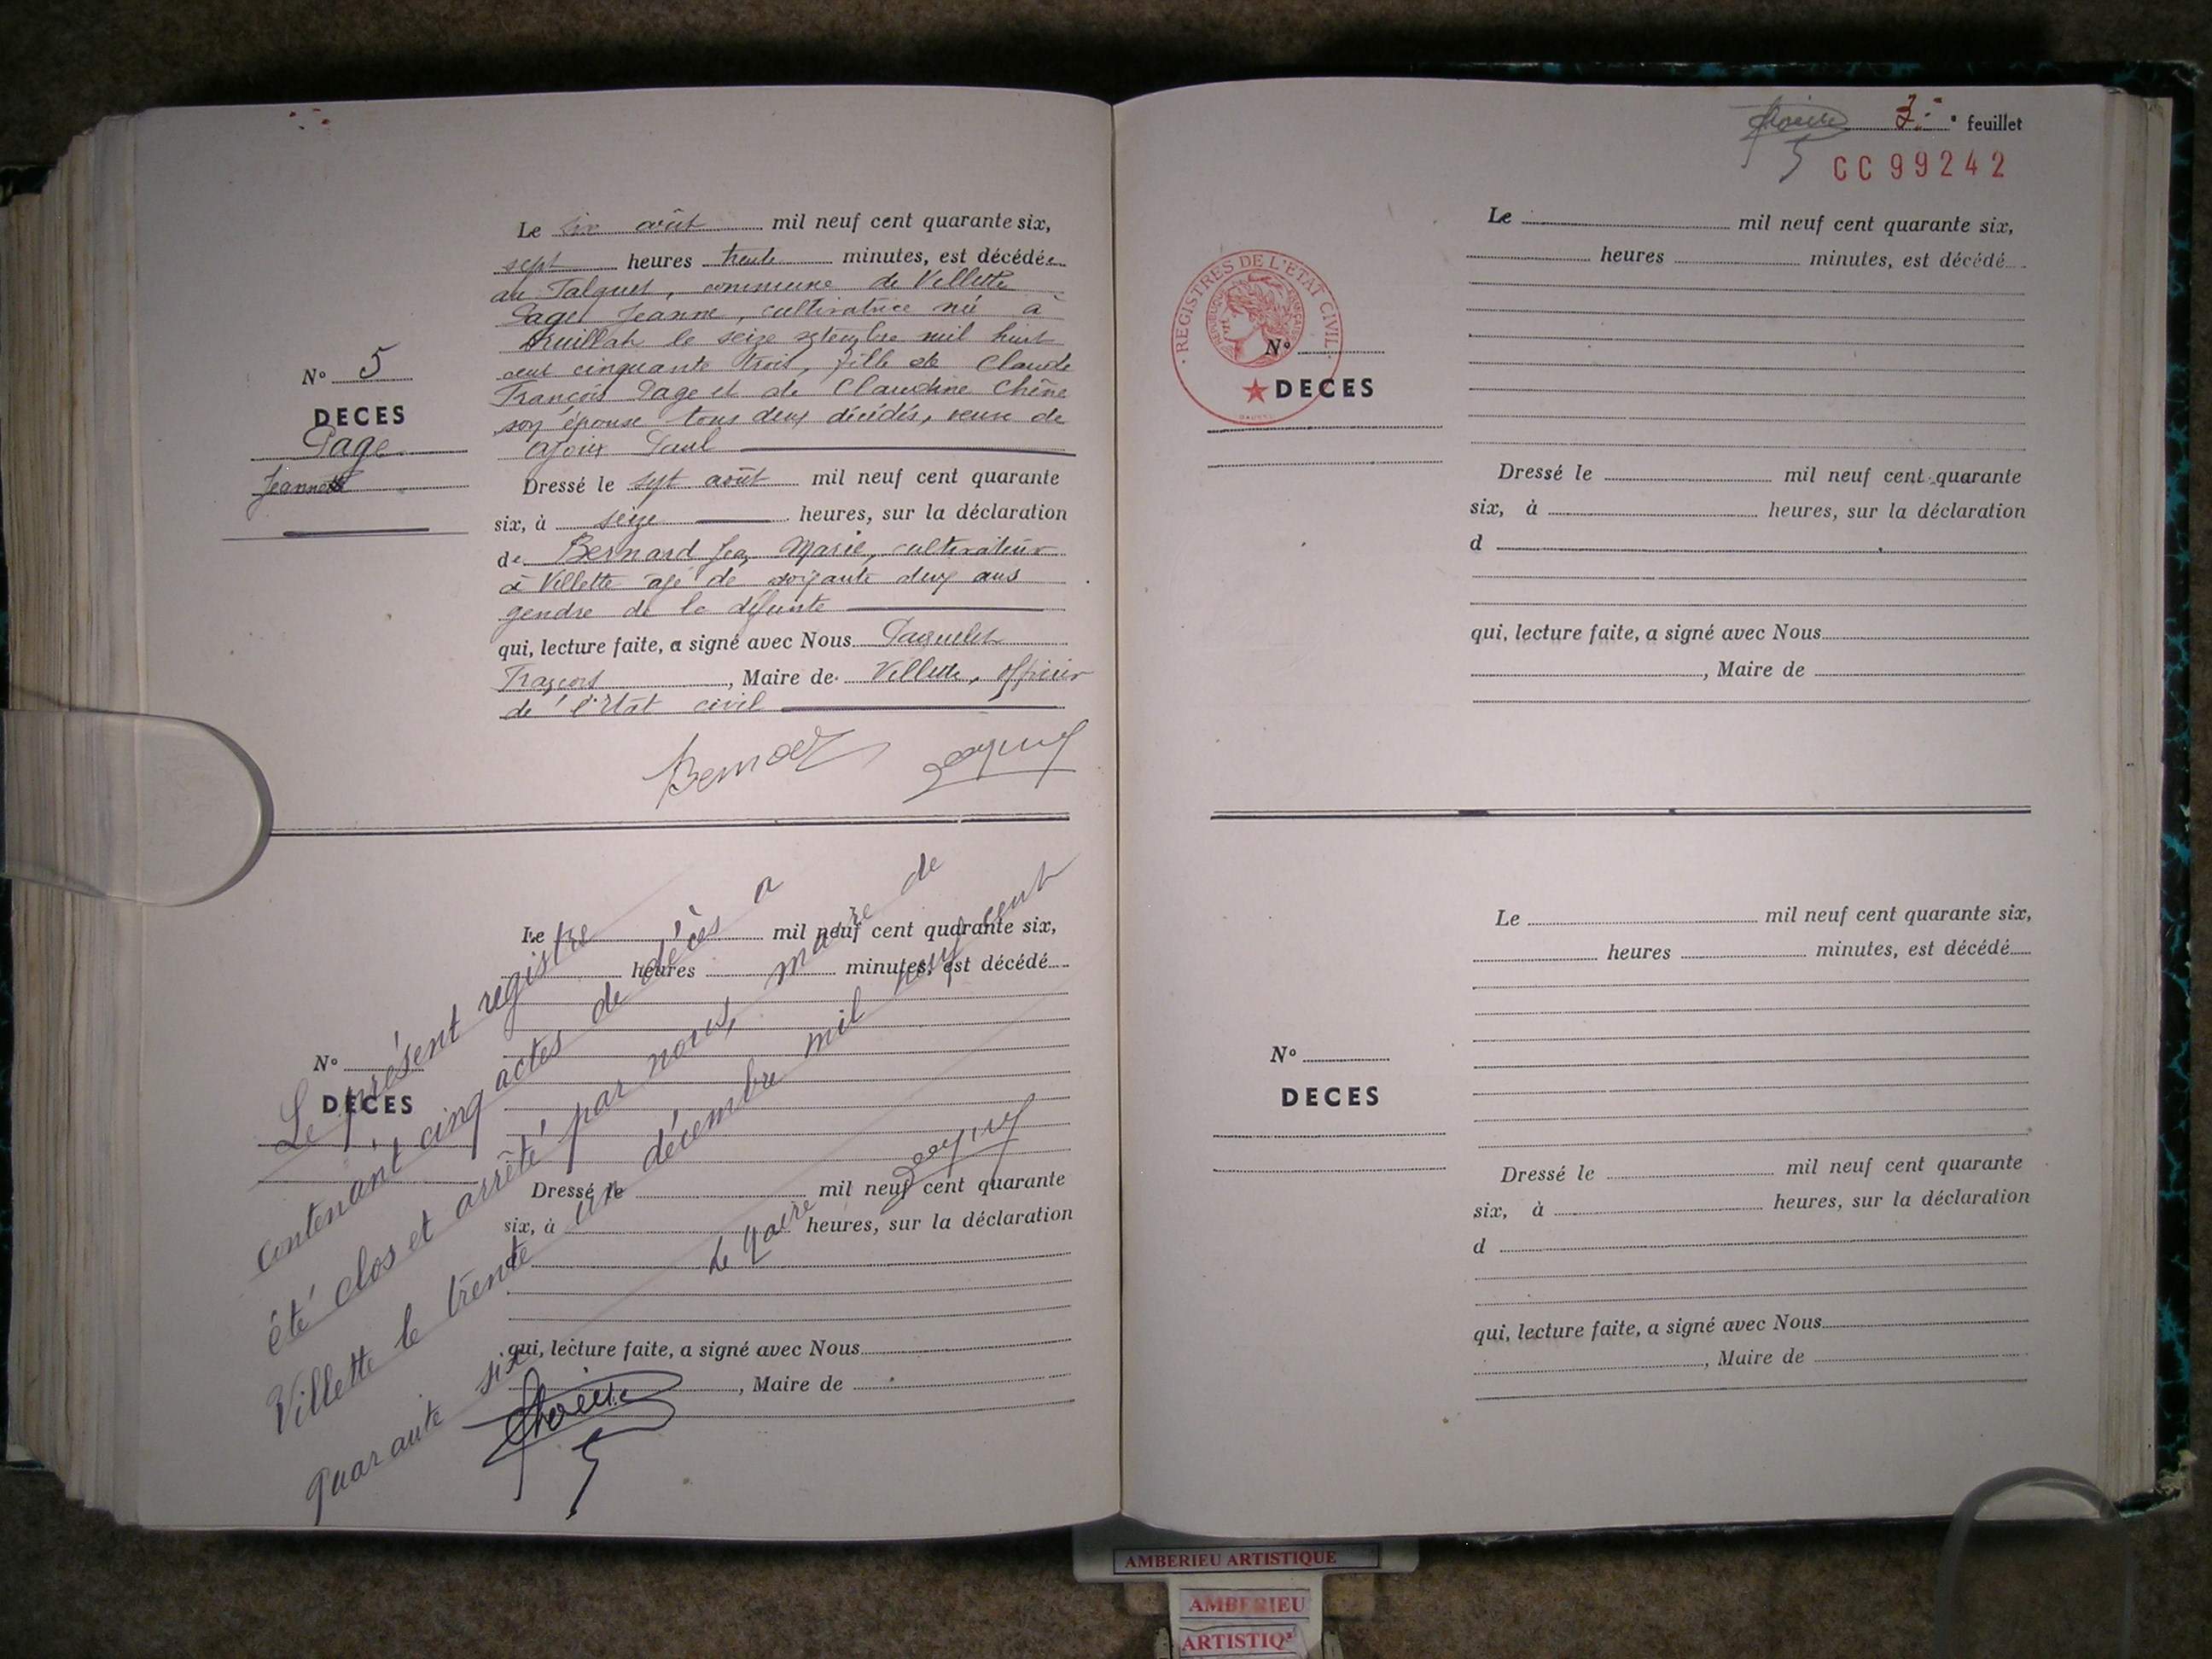 N° 5
DECES
Page
Jeanne
Le six août mil neuf cent quarante six,
sept heures trente minutes, est décédée
au Talquet, commune de Villette
Page Jeanne, cultivatrice née à
Druillat le seize septembre mil huit
cent cinquante trois, fille de Claude
François Page et de Claudine Chêne
son épouse tous deux décédés, veuve de
Paul
Dressé le sept août mil neuf cent quarante
six, à seize heures, sur la déclaration
de Bernard Jean Marie, cultivateur
à Villette agé de soixante deux ans
gendre de la défunte
qui, lecture faite, a signé avec Nous Paquelet
François, Maire de Villette, officier
de l'état civil
N°
DECES
Le mil neuf cent quarante six,
heures minutes, est décédé
Dressé le mil neuf cent quarante
six, à heures, sur la déclaration
d
qui, lecture faite, a signé avec Nous
, Maire de
Le présent registre
contenant cinq actes de décès a
été clos et arrêté par nous, maire de
Villette le trente un décembre mil neuf cent
quarante six
Le Maire
3 feuillet
CC99242
REGISTRES DE L'ETAT CIVIL
N°
DECES
Le mil neuf cent quarante six,
heures minutes, est décédé
Dressé le mil neuf cent quarante
six, à heures, sur la déclaration
d
qui, lecture faite, a signé avec Nous
, Maire de
N°
DECES
Le mil neuf cent quarante six,
heures minutes, est décédé
Dressé le mil neuf cent quarante
six, à heures, sur la déclaration
d
qui, lecture faite, a signé avec Nous
, Maire de
AMBERIEU ARTISTIQUE
AMBERIEU
ARTISTIQ